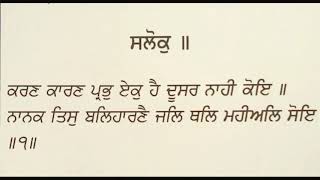 ਸਲੋਕੁ ॥
ਕਰਣ ਕਾਰਣ ਪ੍ਰਭੁ ਏਕੁ ਹੈ ਦੂਸਰ ਨਾਹੀ ਕੋਇ ॥
ਨਾਨਕ ਤਿਸੁ ਬਲਿਹਾਰਣੈ ਜਲਿ ਥਲਿ ਮਹੀਅਲਿ ਸੋਇ
॥੧॥